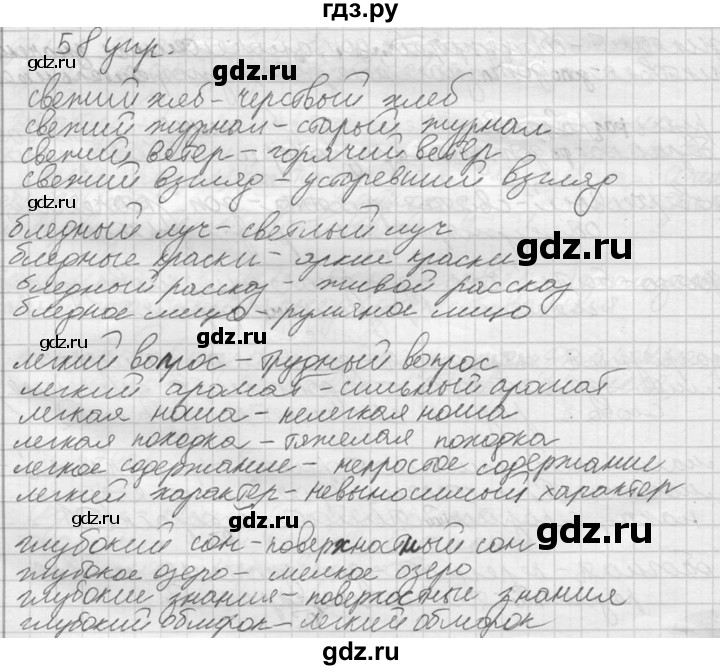 гдз.ру
58 упр.
gdz.ru gdz.ru
свежий хлеб - черствый хлеб
свежий журнал - старый журнал
свежий ветер - горячий ветер
gdz.ru gdz.ru
свежий взгляд - устаревший взгляд
gdz.ru
бледный луч - светлый луч
gdz.ru
бледные краски - яркие краски
бледный рассказ - живой рассказ
бледное лицо - румяное лицо
gdz.ru gdz.ru
легкий вопрос - трудный вопрос
gdz.ru
легкий аромат - сильный аромат
легкая ноша - нелегкая ноша
легкая походка - тяжелая походка
легкое содержание - непростое содержание
легкий характер - невыносимый характер
gdz.ru gdz.ru
gdz.ru
глубокий сон - поверхностный сон
глубокое озеро - мелкое озеро
глубокие знания - поверхостные знания
глубокий обморок - легкий обморок
gdz.ru gdz.ru